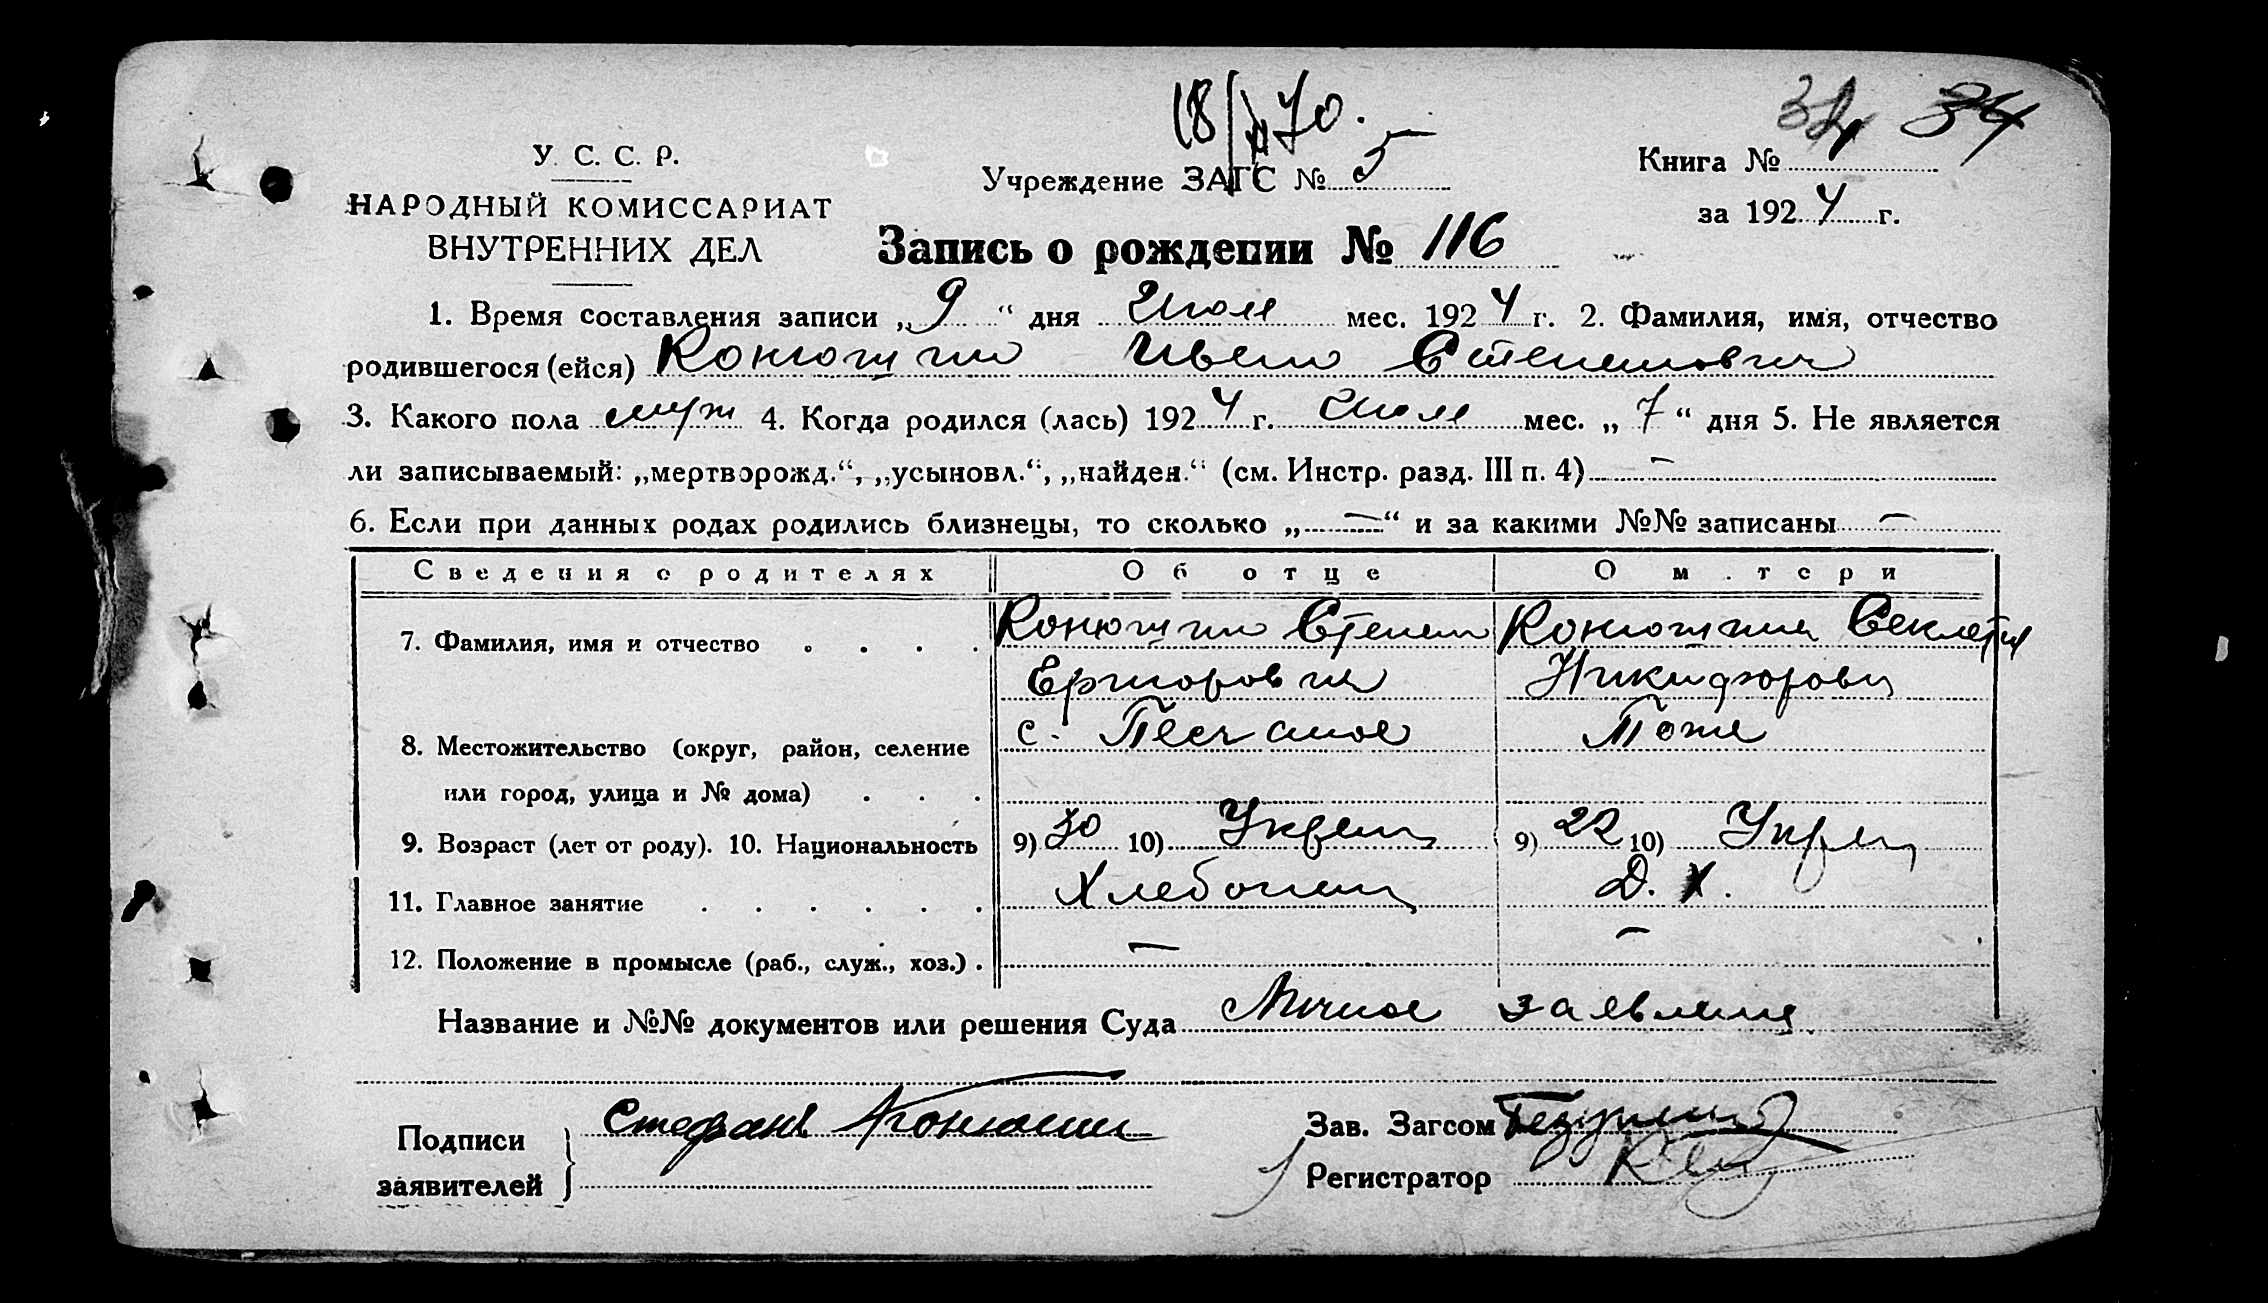 18/IV 70.
34 34
У. С. С. Р.
НАРОДНЫЙ КОМИССАРИАТ
ВНУТРЕННИХ ДЕЛ
Учреждение ЗАГС № 5
Книга №
за 1924 г.
Запись о рождении № 116
1. Время составления записи „9“ дня Июля мес. 1924 г. 2. Фамилия, имя, отчество
родившегося (ейся) Конюшин Иван Степанович
3. Какого пола муж 4. Когда родился (лась) 1924 г. Июля мес. „7“ дня 5. Не является
ли записываемый: „мертворожд.“, „усыновл.“, „найден.“ (см. Инстр. разд. III п. 4) —
6. Если при данных родах родились близнецы, то сколько „—“ и за какими №№ записаны —
Сведения о родителях Об отце О м.тери
7. Фамилия, имя и отчество . . . . Конюшин Степан Конюшина Секлета
Никифоровн
8. Местожительство (округ, район, селение с. Песчаное Тоже
или город, улица и № дома) . . .
9. Возраст (лет от роду). 10. Национальность 9) 30 10) Украин 9) 22 10) Украин
11. Главное занятие . . . . . . Хлебопаш Д. Х.
12. Положение в промысле (раб., служ., хоз.) . — —
Название и №№ документов или решения Суда Личное заявление
Подписи
заявителей
Стефан Конюшин
Зав. Загсом
Регистратор